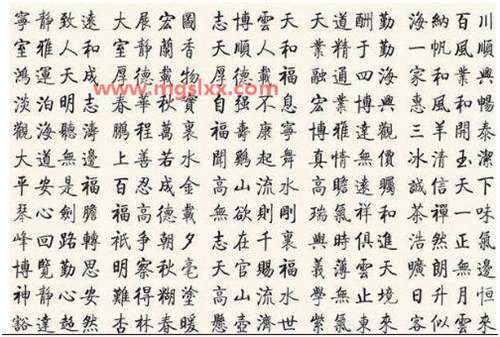 寧靜致遠 大展宏圖 志博雲天 天道酬勤 海納百川
室雅人和 室靜蘭香 博順人和 業精于勤 一帆風順
鴻運天成 厚德載物 厚德載福 融通四海 和業興
淡泊明志 春華秋實 自强不息 宏業博興 惠風和暢
觀海聽濤 鵬程萬裏 福壽康寧 博雅達觀 三羊開泰
大道無邊 上善若水 聞鷄起舞 真情無價 冰清玉潔
平安是福 百忍成金 高山流水 高瞻遠矚 誠信天下
琴心劍膽 福高德載 無欲則剛 瑞氣祥和 茶禪一味
峰回路轉 祇爭朝夕 志在千裏 與時俱進 浩然正氣
博覽勤思 明察秋毫 天官賜福 義薄雲天 曠朗無邊
神靜心安 難得糊塗 高山流水 學無止境 日升月恒
豁達超然 杏林春暖 懸壺濟世 紫氣東來 客似雲來
www.mgslxx.com